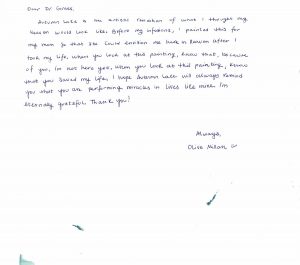 Dear Dr. Grass,
Autumn Lake is the artistic creation of what I thought my
heaven would look like. Before my infusions, I painted this for
my mom so that she could envision me here in heaven after I
took my life. When you look at this painting, know that, because
of you, I'm not here yet. When you look at this painting, know
that you saved my life. I hope Autumn Lake will always remind
you that you are performing miracles in lives like mine. I'm
eternally grateful. Thank you!
Always,
Olivia